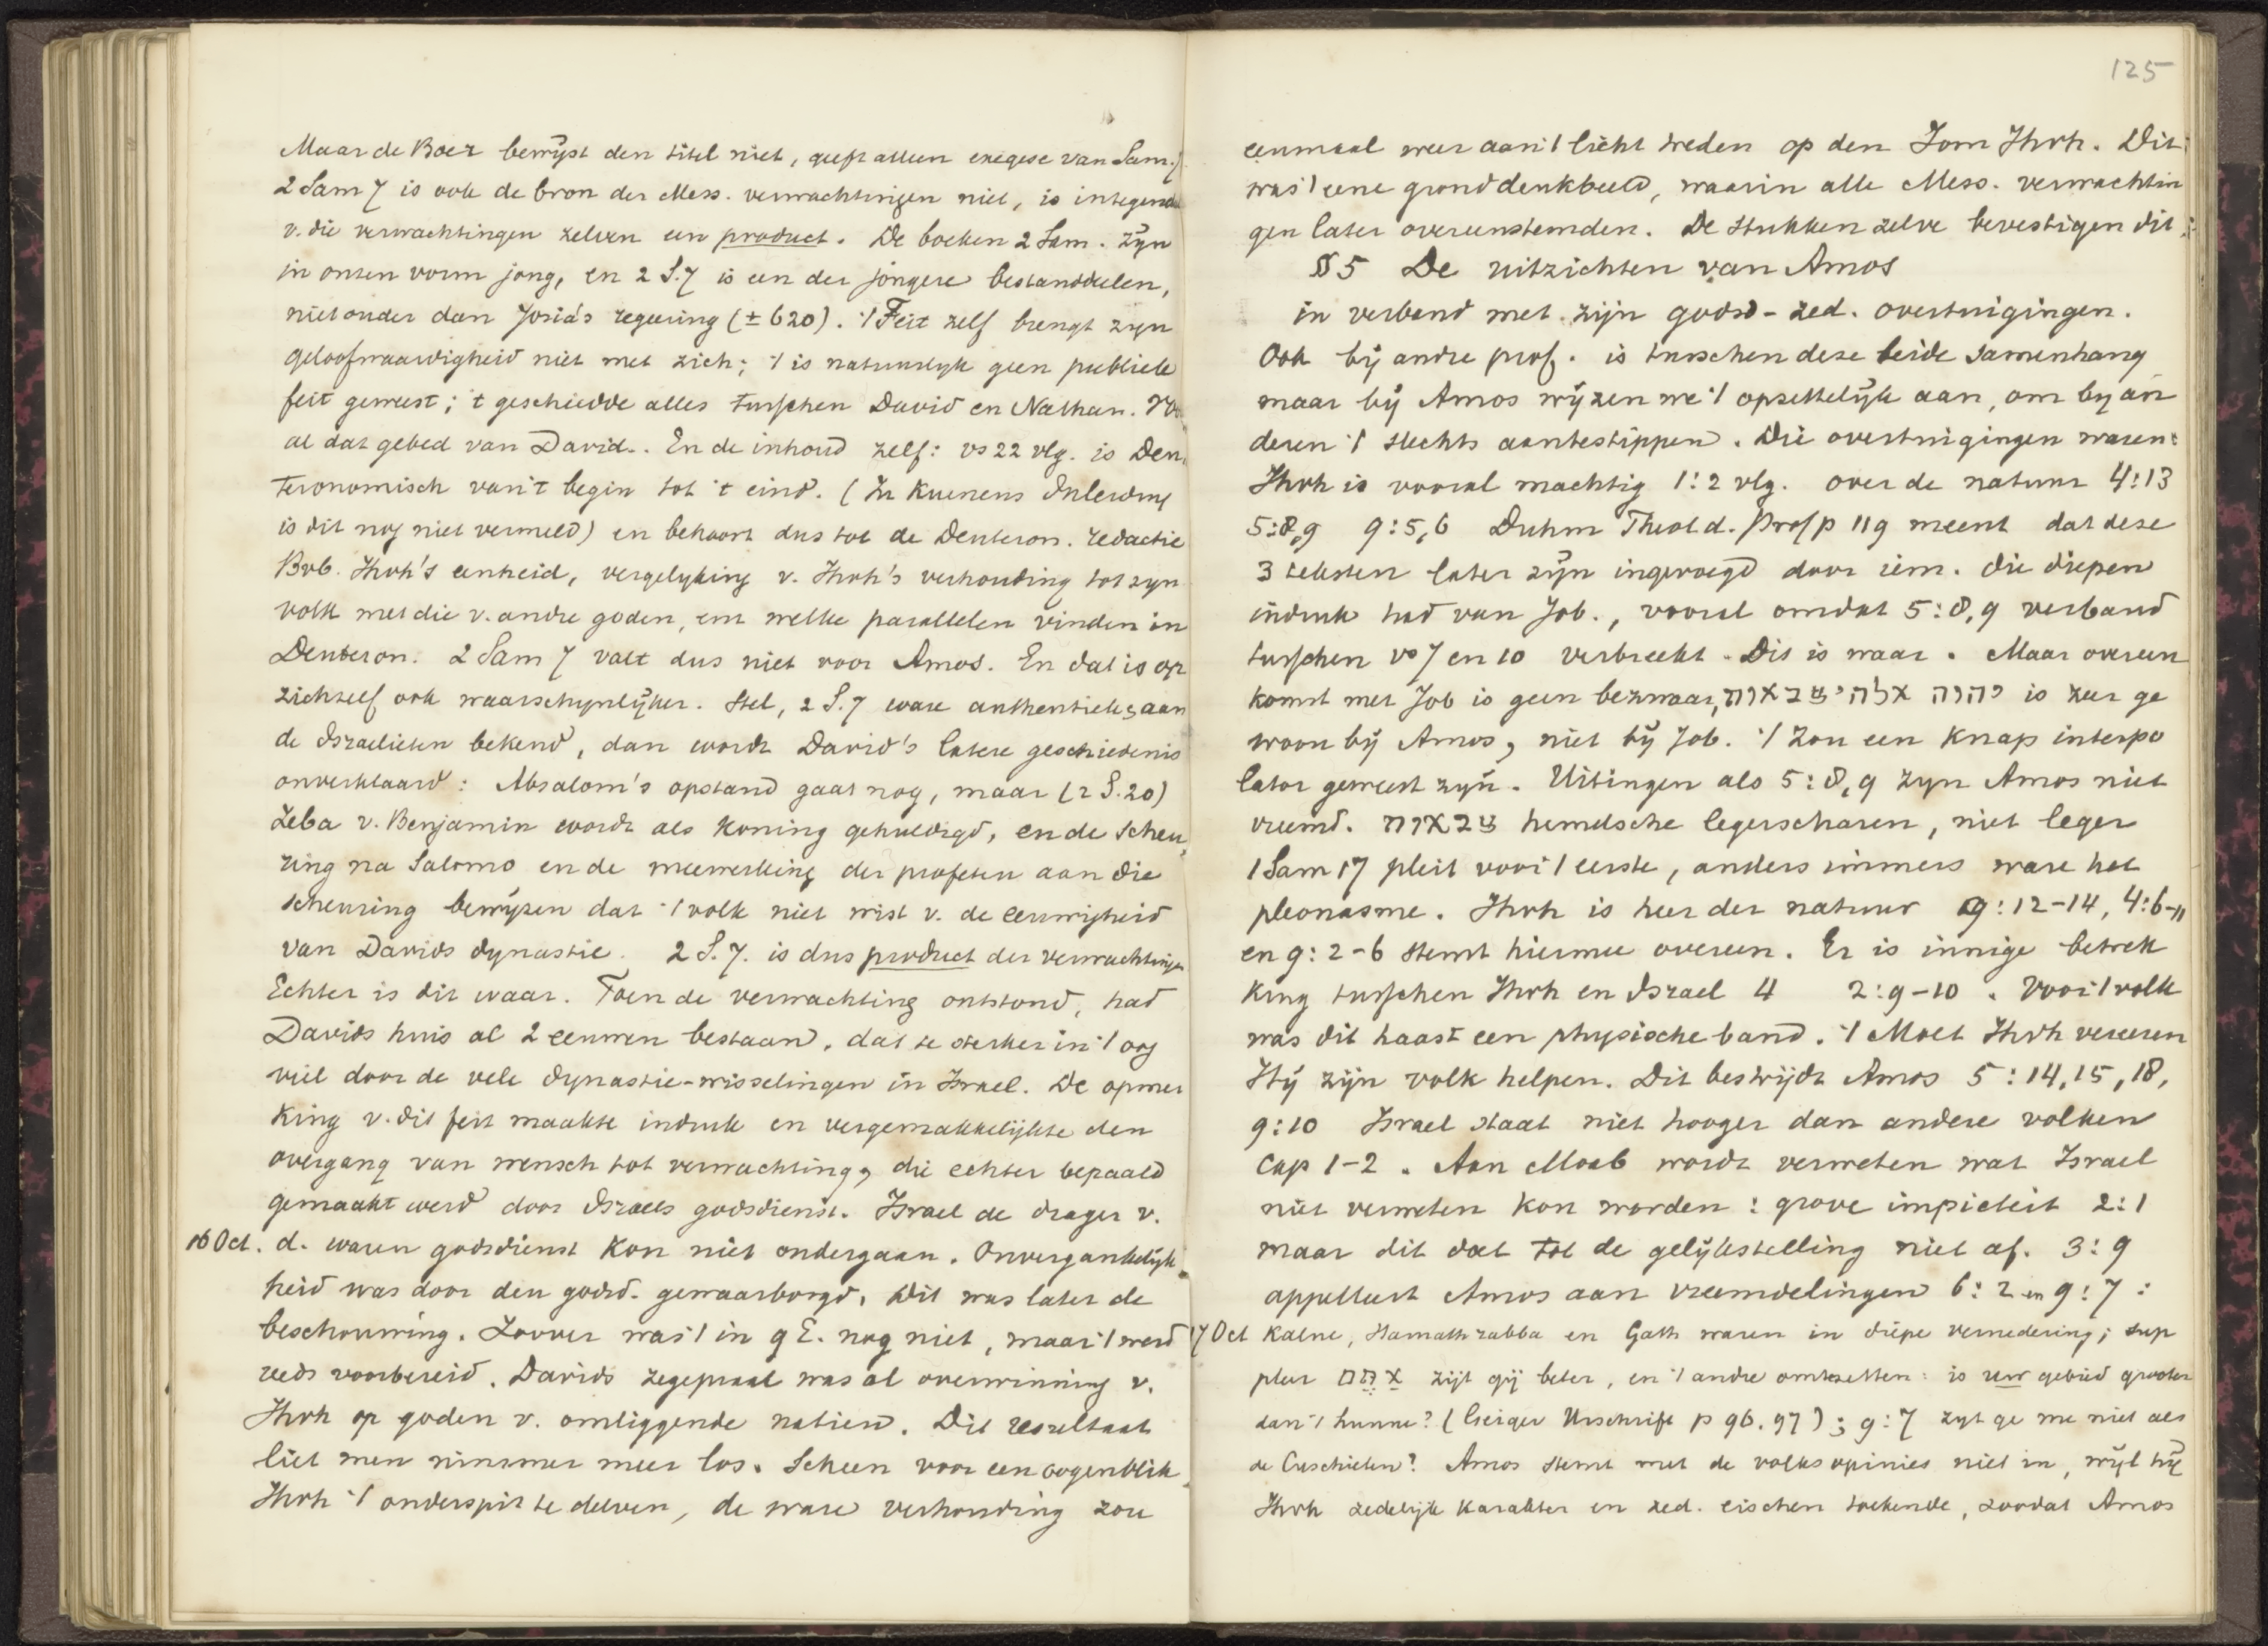 Maar de Boer bewijst den titel niet, geeft alleen exegese van Sam. 7
2 Sam 7 is ook de bron der Mess. verwachtingen niet, is integendeel
v. die verwachtingen zelven een product. De boeken 2 Sam. zijn
in onzen vorm jong, en 2 S. 7 is een der jongere bestanddeelen,
niet ouder dan Josia's regeering (± 620). 't Feit zelf brengt zijn
geloofwaardigheid niet met zich; 't is natuurlijk geen publiek
feit geweest; 't geschiedde alles tusschen David en Nathan.
al dat gebed van David. En de inhoud zelf: vs 22 vlg. is Deu
teronomisch van 't begin tot 't eind. (In Kuenens Inleiding
is dit nog niet vermeld) en behoort dus tot de Deuteron. redactie
Bvb. Jhvh's eenheid, vergelijking v. Jhvh's verhouding tot zijn
volk met die v. andre goden, enz welke parallelen vinden in
Deuteron. 2 Sam 7 valt dus niet voor Amos. En dat is op
zichzelf ook waarschijnlijker. Stel, 2 S. 7 ware authentiek, aan
de Israelieten bekend, dan wordt David's latere geschiedenis
onverklaard: Absalom's opstand gaat nog, maar (2 S. 20)
Zeba v. Benjamin wordt als koning gehuldigd, en de scheu
ring na Salomo en de meewerking der profeten aan die
scheuring bewijzen dat 't volk niet wist v. de eeuwigheid
van Davids dynastie. 2 S. 7. is dus product der verwachtingen
Echter is dit waar. Toen de verwachting ontstond, had
Davids huis al 2 eeuwen bestaan, dat te sterker in 't oog
viel door de vele dynastie-wisselingen in Israel. De opmer
king v. dit feit maakte indruk en vergemakkelijkte den
overgang van wensch tot verwachting, die echter bepaald
gemaakt werd door Israels godsdienst. Israel de drager v.
16 Oct. d. waren godsdienst kon niet ondergaan. Onvergankelijk
heid was door den godsd. gewaarborgd. Dit was later de
beschouwing. Zoover was 't in 9 E. nog niet, maar 't werd
reeds voorbereid. Davids zegepraal was al overwinning v.
Jhvh op goden v. omliggende natien. Dit resultaat
liet men nimmer meer los. Scheen voor een oogenblik
Jhvh 't onderspit te delven, de ware verhouding zou
125
eenmaal weer aan 't licht treden op den Jom Jhvh. Dit
was 't eene gronddenkbeeld, waarin alle Mess. verwachtin
gen later overeenstemden. De stukken zelve bevestigen dit:
§ 5 De uitzichten van Amos
in verband met zijn godsd-zed. overtuigingen.
Ook bij andre prof. is tusschen deze beide samenhang
maar bij Amos wijzen we 't opzettelijk aan, om bij an
deren 't slechts aantestippen. Die overtuigingen waren:
Jhvh is vooral machtig 1:2 vlg. over de natuur 4:13
5:8,9 9:5,6 Duhm Theol d. Prof p 119 meent dat deze
3 teksten later zijn ingevoegd door iem. die diepen
indruk had van Job., vooral omdat 5:8,9 verband
tusschen vs 7 en 10 verbreekt. Dit is waar. Maar overeen
komst met Job is geen bezwaar, יהוה אלהי צבאות is zeer ge
woon bij Amos, niet bij Job. 't Zou een knap interpo
lator geweest zijn. Uitingen als 5:8,9 zijn Amos niet
vreemd. צבאות hemelsche legerscharen, niet leger
1 Sam 17 pleit voor 't eerste, anders immers ware het
pleonasme. Jhvh is heer der natuur 9:12-14, 4:6-11
en 9:2-6 stemt hiermee overeen. Er is innige betrek
king tusschen Jhvh en Israel 4 2:9-10. Voor 't volk
was dit haast een physische band. 't Moet Jhvh vereeren
Hij zijn volk helpen. Dit bestrijdt Amos 5:14,15,18,
9:10 Israel staat niet hooger dan andere volken
cap 1-2. Aan Moab wordt verweten wat Israel
niet verweten kon worden: grove impieteit 2:1
maar dit doet tot de gelijkstelling niet af. 3:9
appelleert Amos aan vreemdelingen 6:2 en 9:7:
17 Oct Kalne, Hamath rabba en Gath waren in diepe vernedering; sup
pleer אתם zijt gij beter, en 't andre omtezetten: is uw gebied grooter
dan 't hunne? (Geiger Urschrift p 96.97); 9:7 zijt ge me niet als
de Cuschieten? Amos stemt met de volksopinies niet in, wijl hij
Jhvh zedelijk karakter en zed. eischen toekende, zoodat Amos